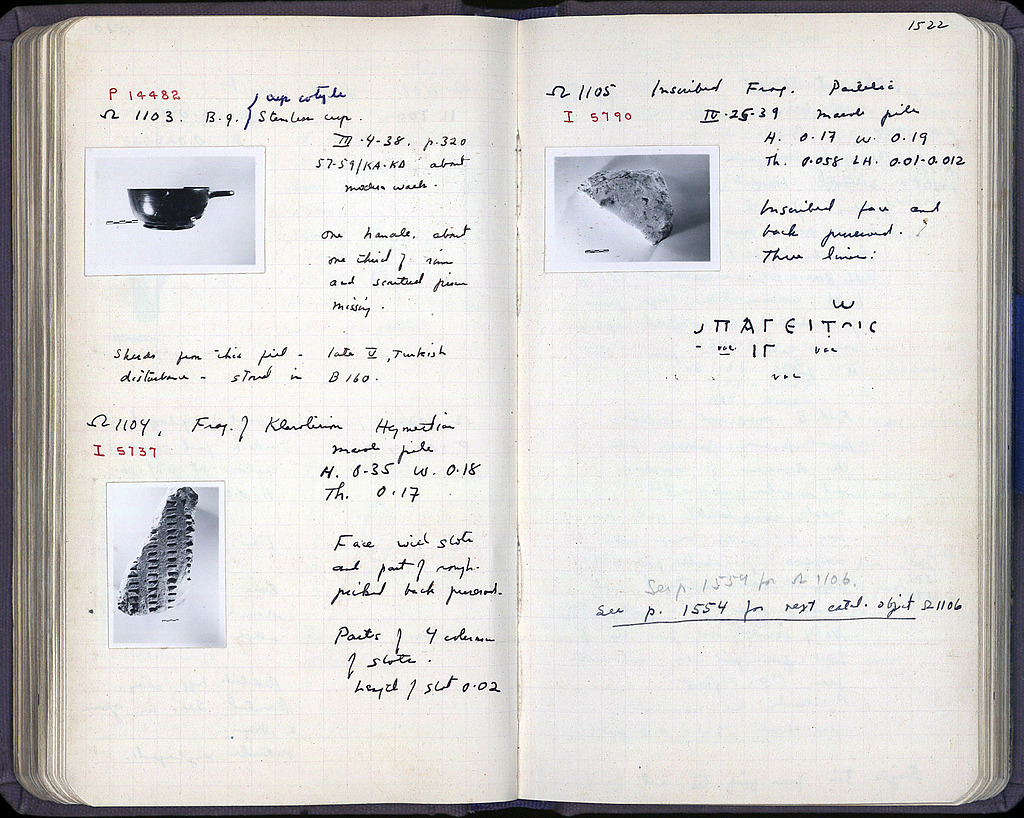 P 14482
Ω 1103 B.g. { cup cotyle
Stemless cup.
III-4-38. p.320
57-59/KA-KΔ about
modern wash.
One handle, about
one third of rim
and scattered pieces
missing.
Sherds from this pit - late V, Turkish
disturbance - stored in B 160.
Ω 1104. Frag. of Kleroterion Hymettian
I 5737
marble pile
H. 0.35 W. 0.18
Th. 0.17
Face with slots
and part of rough-
picked back preserved.
Parts of 4 columns
of slots.
Length of slot 0.02
1522
Ω 1105 Inscribed Frag. Pentelic
I 5790
IV-25-39 marble pile
H. 0.17 W. 0.19
Th. 0.058 LH. 0.01-0.012
Inscribed face and
back preserved.
Three lines:
ω
ΠΑΓΕΙΤ
vac ΙΓ vac
vac
See p. 1554 for Ω 1106.
See p. 1554 for next catal. object Ω 1106